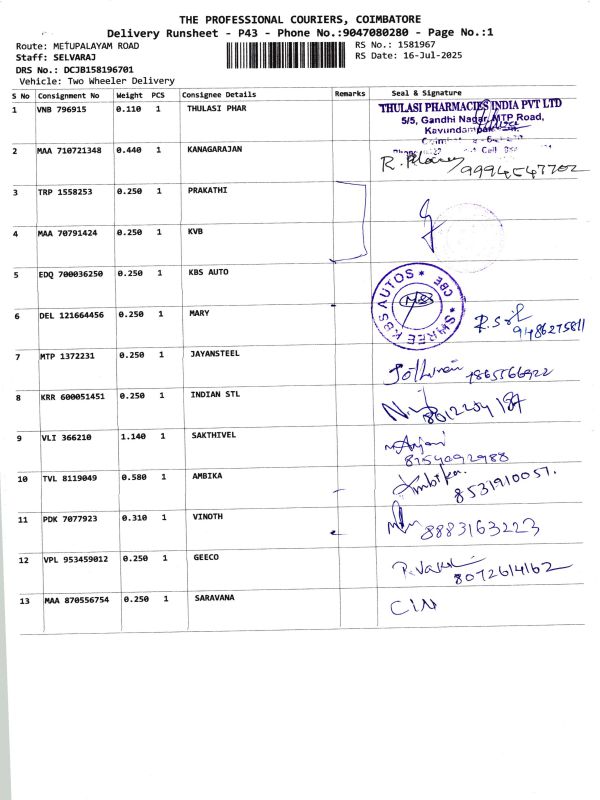 THE PROFESSIONAL COURIERS, COIMBATORE
Delivery Runsheet - P43 - Phone No.:9047080280 - Page No.:1
Route: METUPALAYAM ROAD
RS No.: 1581967
Staff: SELVARAJ
RS Date: 16-Jul-2025
DRS No.: DCJB158196701
Vehicle: Two Wheeler Delivery
S No Consignment No Weight PCS Consignee Details Remarks Seal & Signature
1 VNB 796915 0.110 1 THULASI PHAR THULASI PHARMACIES INDIA PVT LTD
5/5, Gandhi Nagar, MTP Road,
2 MAA 710721348 0.440 1 KANAGARAJAN 9994547702
3 TRP 1558253 0.250 1 PRAKATHI
4 MAA 70791424 0.250 1 KVB
5 EDQ 700036250 0.250 1 KBS AUTO SHREE KBS AUTOS * CBE *
6 DEL 121664456 0.250 1 MARY 9486275811
7 MTP 1372231 0.250 1 JAYANSTEEL
8 KRR 600051451 0.250 1 INDIAN STL
9 VLI 366210 1.140 1 SAKTHIVEL 8754092988
10 TVL 8119049 0.580 1 AMBIKA Ambika. 8531910057.
11 PDK 7077923 0.310 1 VINOTH 8883163223
12 VPL 953459012 0.250 1 GEECO 8072614162
13 MAA 870556754 0.250 1 SARAVANA